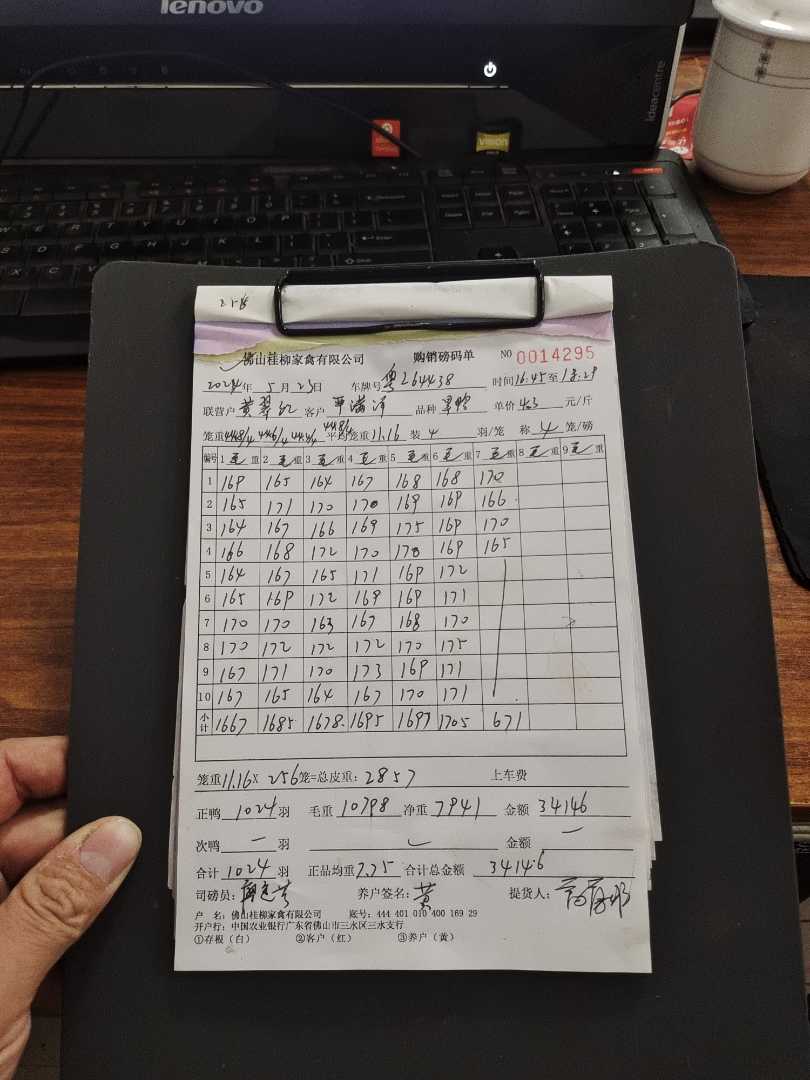 lenovo
ideacentre
VISION
佛山桂柳家禽有限公司 购销磅码单 NO 0014295
2024年 5月23日 车牌号 粤Z64438 时间16:45至18:29
联营户 黄翠红 客户 品种 单价 4.3 元/斤
笼重 44.8/4 44.6/4 44.4/4 44.8/4 平均笼重 11.16 装 4 羽/笼 称 4 笼/磅
编号 1 毛重 2 毛重 3 毛重 4 毛重 5 毛重 6 毛重 7 毛重 8 毛重 9 毛重
1 169 165 164 167 168 168 170
2 165 171 170 170 169 169 166
3 164 167 166 169 175 169 170
4 166 168 172 170 170 169 165
5 164 167 165 171 169 172
6 165 169 172 169 169 171
7 170 170 163 167 168 170
8 170 172 172 172 170 175
9 167 171 170 173 169 171
10 167 165 164 167 170 171
小计 1667 1685 1678 1695 1697 1705 671
笼重 11.16 X 256 笼=总皮重: 2857 上车费
正鸭 1024 羽 毛重 10798 净重 7941 金额 34146
次鸭 一 羽 金额 一
合计 1024 羽 正品均重 7.75 合计总金额 34146
司磅员: 养户签名: 黄 提货人:
户 名: 佛山桂柳家禽有限公司 账号: 444 401 010 400 169 29
开户行: 中国农业银行广东省佛山市三水区三水支行
①存根(白) ②客户(红) ③养户(黄)